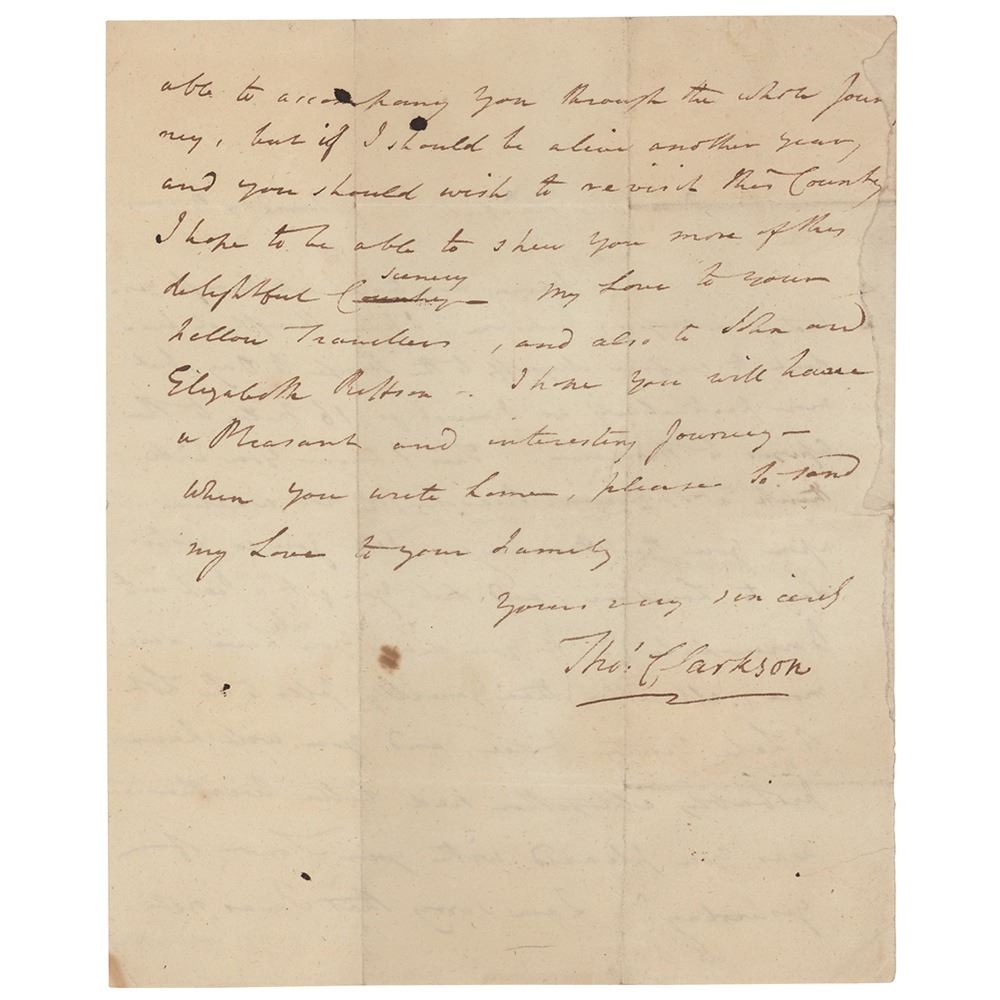 able to accompany you through the whole Jour
ney, but if I should be alive another year,
and you should wish to revisit this County
I hope to be able to shew you more of this
delightful County scenery my Love to your
fellow Travellers, and also to John and
Elizabeth - I hope you will have
a Pleasant and interesting Journey -
when you write home, please to send
my Love to your Family
yours very sincerely
Thos. Clarkson